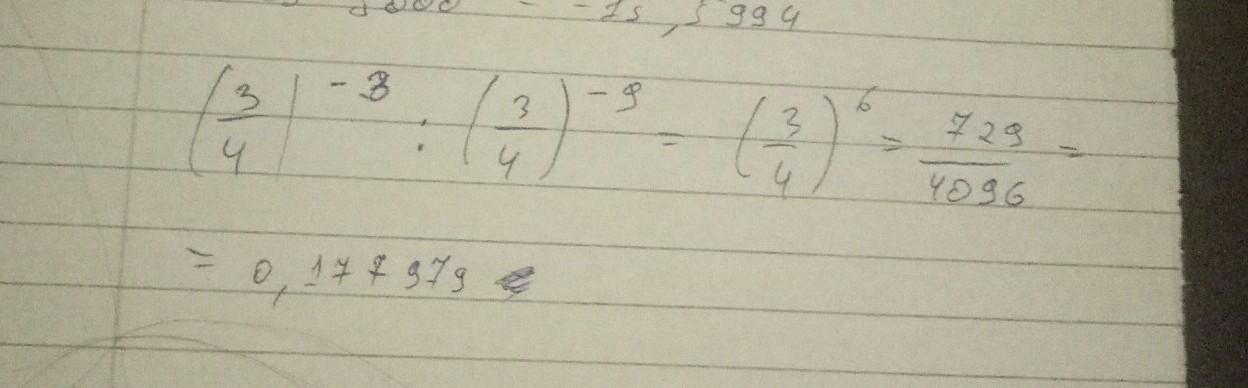 - 15,5994
(3/4)^-3 : (3/4)^-9 = (3/4)^6 = 729/4096 =
= 0,177979